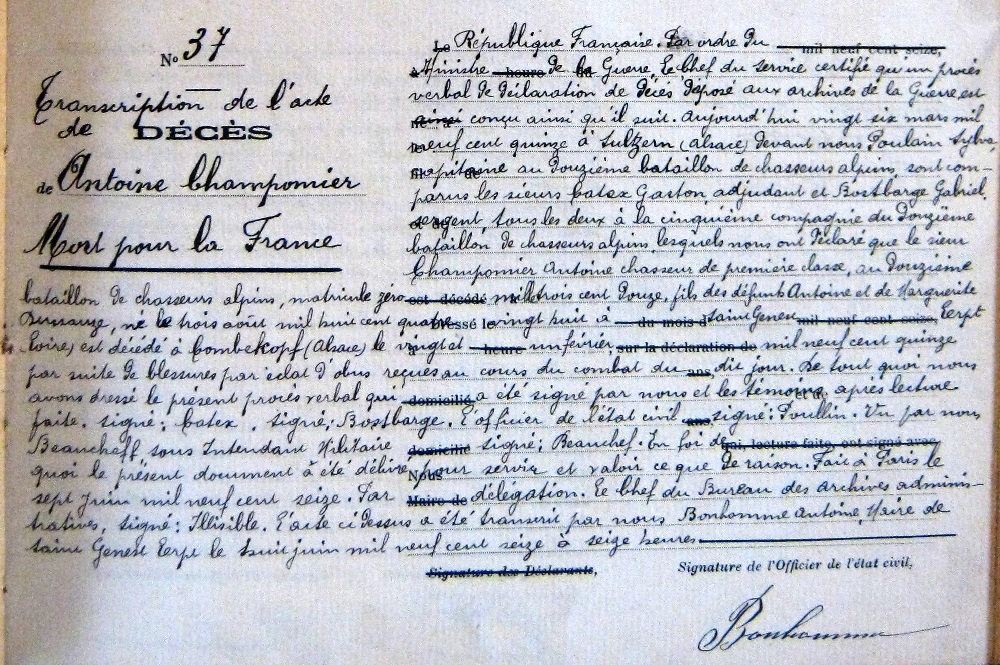 N° 37
Transcription de l'acte
de DÉCÈS
de Antoine Champomier
Mort pour la France
Le République Française. Par ordre du mil neuf cent seize,
Ministre heure de la Guerre, Le Chef du service certifie qu'un procès
verbal de déclaration de décès déposé aux archives de la Guerre, est
ainsi conçu ainsi qu'il suit. Aujourd'hui vingt six mars mil
neuf cent quinze à Sultzern (Alsace) devant nous Poulain Sylva
capitaine au Douzième bataillon de chasseurs alpins, sont com-
parus les sieurs Catex Gaston, adjudant et Bostbarge Gabriel
sergent, tous les deux à la cinquième compagnie du Douzième
bataillon de chasseurs alpins lesquels nous ont déclaré que le sieur
Champomier Antoine chasseur de première classe, au Douzième
bataillon de chasseurs alpins, matricule zéro est décédé mille trois cent douze, fils des défunts Antoine et de Marguerite
né le trois août mil huit cent quatre Dressé le vingt huit à du mois d Saint Genest mil neuf cent seize, Lerpt
Loire) est décédé à Combekopf (Alsace) le vingt et heure un février, sur la déclaration de mil neuf cent quinze
par suite de blessures par éclat d'obus reçues au cours du combat du ans, dit jour. De tout quoi nous
avons dressé le présent procès verbal qui domicilié a été signé par nous et les témoins, après lecture
faite. signé: Catex. signé: Bostbarge. L'officier de l'état civil ans, signé: Poullin. Vu par nous
Beaucheff sous Intendant Militaire domicilié signé; Beauchef. En foi de qui, lecture faite, ont signé avec
quoi le présent document a été délivré Nous pour servir et valoir ce que de raison. Fait à Paris le
sept juin mil neuf cent seize. Par Maire de délégation. Le Chef du Bureau des archives adminis-
tratives, signé: Illisible. L'acte ci dessus a été transcrit par nous Bonhomme Antoine, Maire de
Saint Genest Lerpt le huit juin mil neuf cent seize à seize heures
Signature des Déclarants,
Signature de l'Officier de l'état civil,
Bonhomme